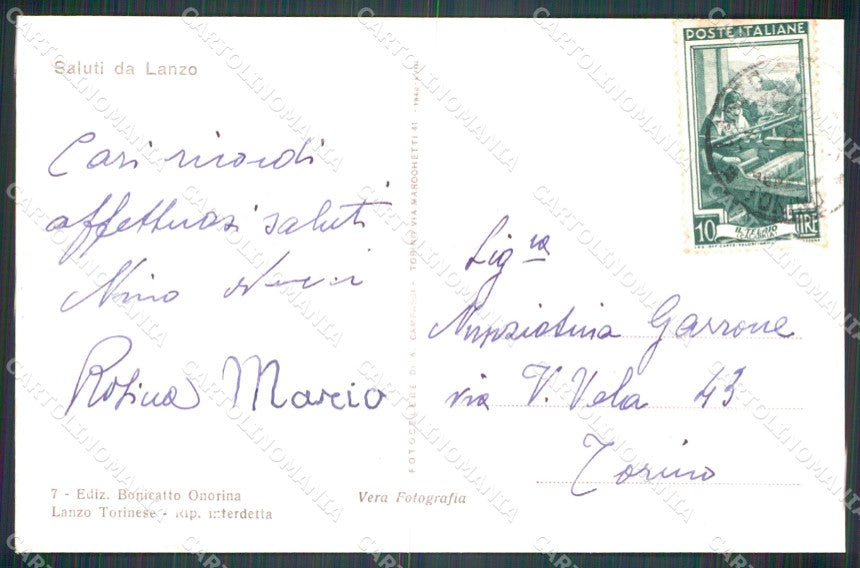 Saluti da Lanzo
Cari ricordi
affettuosi saluti
Nino
Rosina Marcio
7 - Ediz. Bonicatto Onorina
Lanzo Torinese - Rip. Interdetta
Vera Fotografia
FOTOCELERE DI A. CAMPASSI - TORINO VIA MAROCHETTI 41
POSTE ITALIANE
10 LIRE
IL TELAIO
Sig.ra
Nunziatina Garrone
via V. Vela 43
Torino
CARTOLINOMANIA